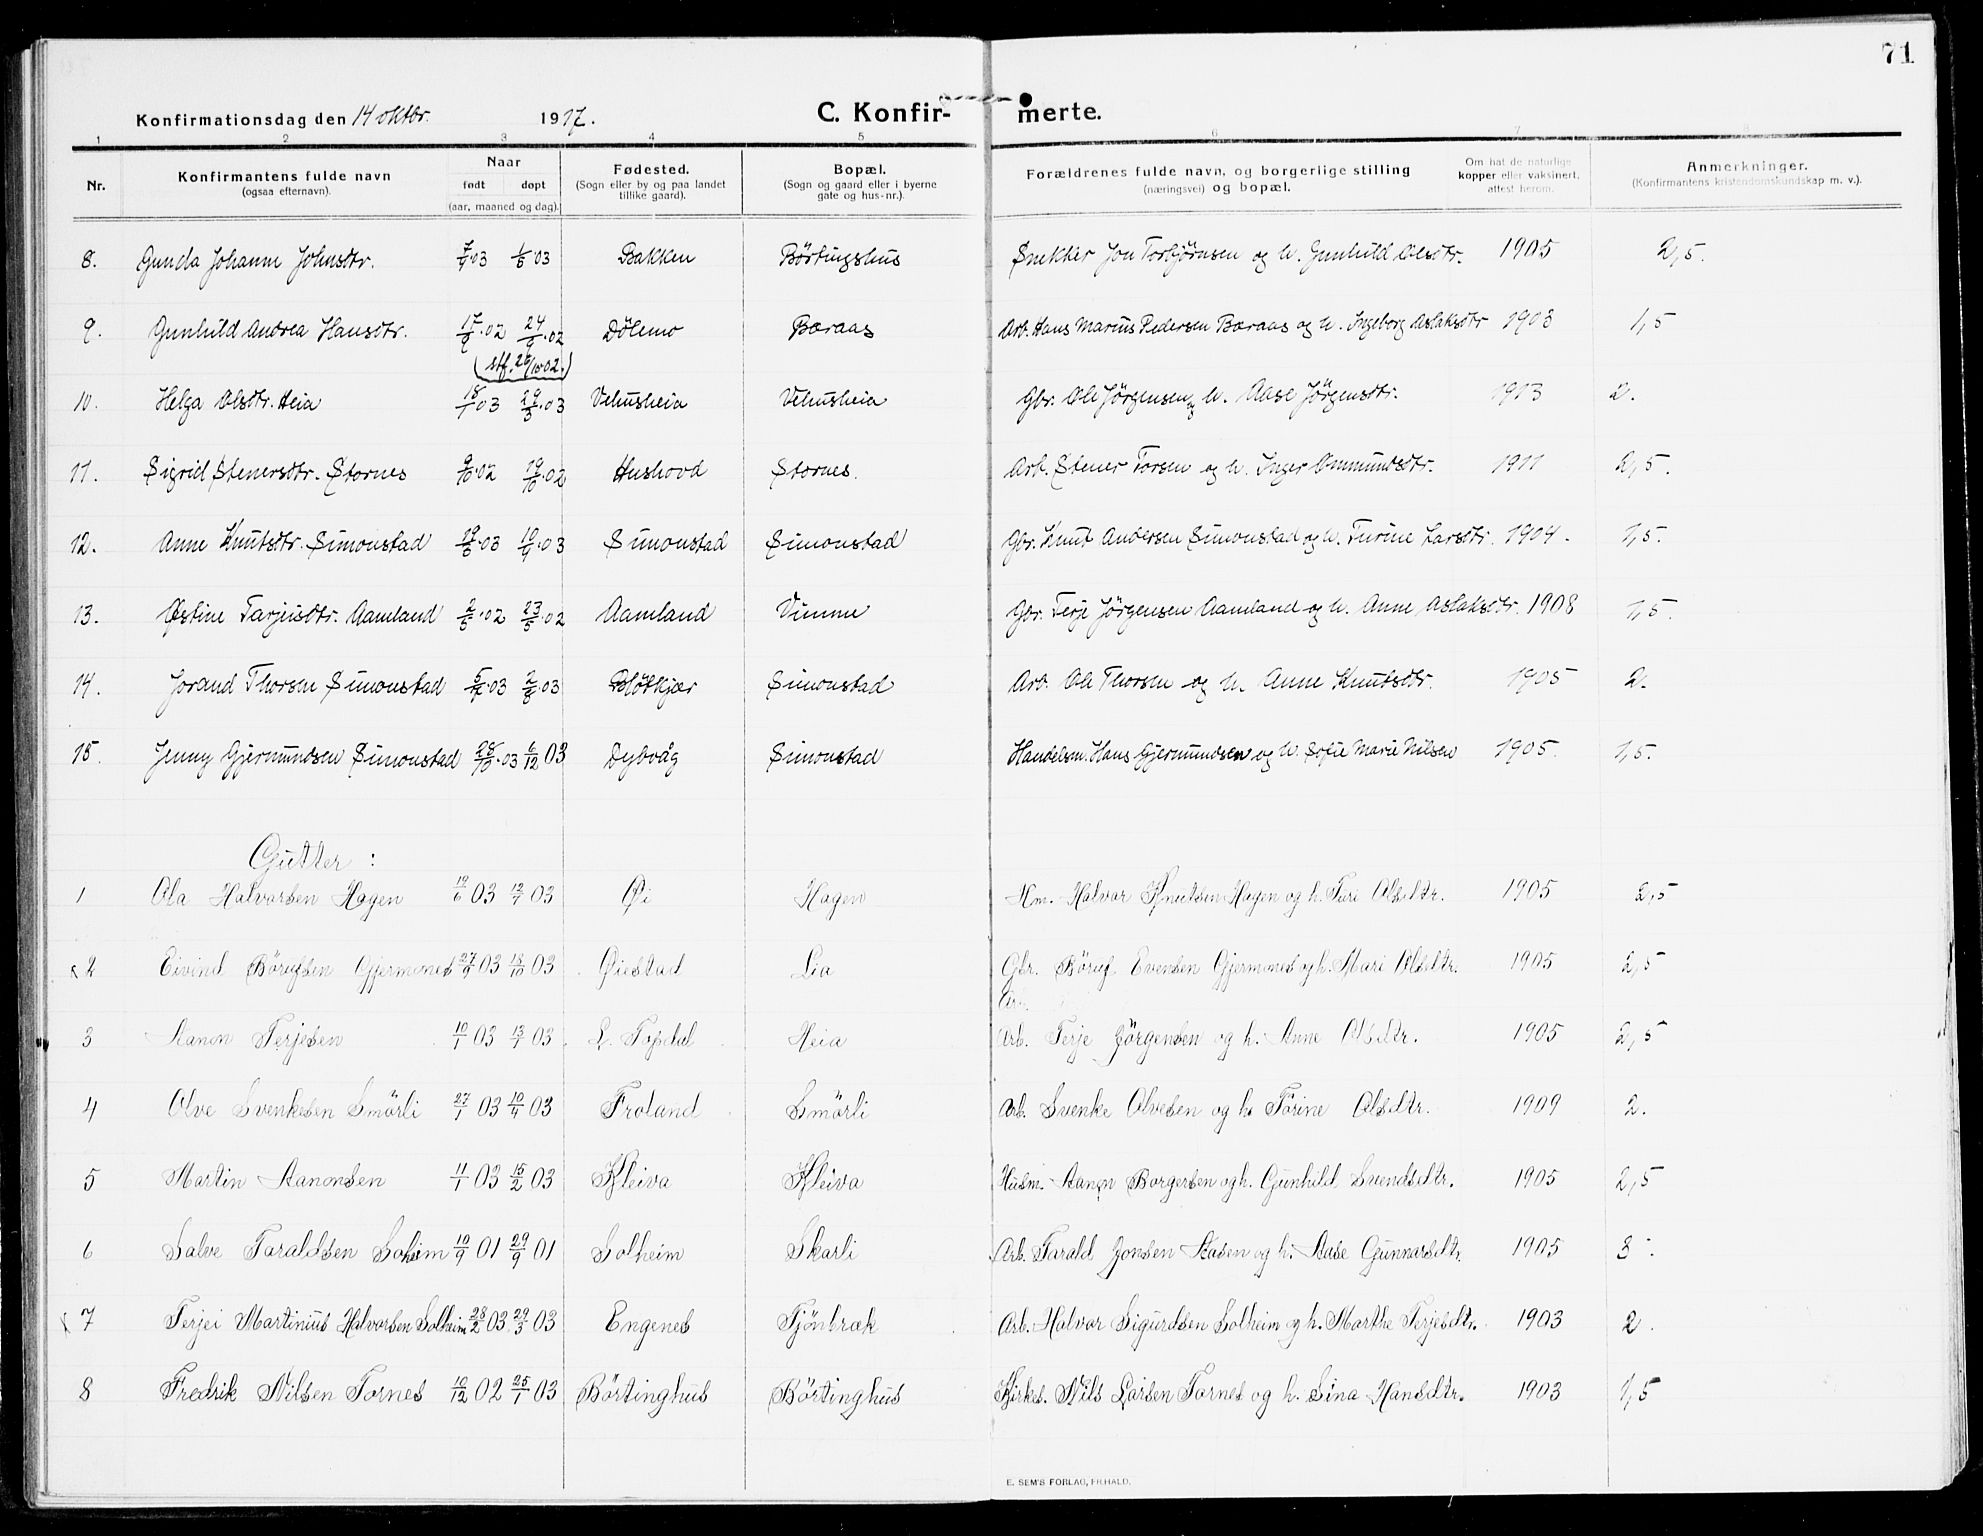 71
Konfirmationsdag den 14 oktbr. 1917. C. Konfir- merte.
1 2 3 4 5 6 7 8
Nr. Konfirmantens fulde navn (ogsaa efternavn). Naar født døpt (aar, maaned og dag). Fødested. (Sogn eller by og paa landet tillike gaard). Bopæl. (Sogn og gaard eller i byerne gate og hus-nr.). Forældrenes fulde navn, og borgerlige stilling (næringsvei) og bopæl. Om hat de naturlige kopper eller vaksinert, attest herom. Anmerkninger. (Konfirmantens kristendomskundskap m. v.).
8. Gunda Johanne Johnsdtr. 03 03 Bakken Børtingshus Snekker Jon Torbjørnsen og h. Gunhild Olsdtr. 1905 2,5.
9. Gunhild Andrea Hansdtr. 17/9.02 24/9.02 Dölemo Bæraas Arb. Hans Marius Pedersen Bæraas og h. Ingeborg Aslaksdtr 1903 1,5
(stf. 26/10 02.)
10. Helga Olsdtr. Heia 18/1 03 29/3.03 Vehusheia Vehusheia Gbr. Ole Jörgensen og h. Aase Jörgensdtr. 1913 2.
11. Sigrid Stenersdtr. Stornes 9/10.02 19/10.02 Hushovd Stornes. Arb. Stener Torsen og h. Inger Ommundsdtr. 1911 2,5.
12. Anne Knutsdtr. Simonstad 03 03 Simonstad Simonstad Gbr. Knut Andersen Simonstad og h. Turine Larsdtr. 1904. 1,5.
13. Østine Tarjeisdtr. Aamland 2/5.02 23/5.02 Aamland Vimme Gbr. Terje Jörgensen Aamland og h. Anne Aslaksdtr. 1908 1,5.
14. Jorand Thorsen Simonstad 03 03 Blötkjær Simonstad Arb. Ole Thorsen og h. Anne Knutsdtr. 1905 2.
15. Jenny Gjermundsen Simonstad 28/10.03 6/12 03 Dybvåg Simonstad Handelsm. Hans Gjermundsen og h. Sofie Marie Nilsen 1905. 1,5.
Gutter :
1 Ola Halvorsen Hagen 19/6 03 12/7 03 Øi Hagen Hm. Halvor Knutsen Hagen og h. Turi Olsdtr. 1905 2,5
2 Eivind Börufsen Gjermones 27/9 03 18/10 03 Øiestad Lia Gbr. Böruf Evensen Gjermones og h. Mari Olsdtr. 1905 2,5
3 Aanon Terjesen 10/1 03 13/1 03 L. Topdal Heia Arb. Terje Jörgensen og h. Anne Olsdtr. 1905 2,5
4 Olve Svenkesen Smörli 27/1 03 10/4 03 Froland Smörli Arb. Svenke Olvesen og h. Torine Olsdtr. 1909 2.
5 Martin Aanonsen 11/1 03 15/2 03 Kleiva Kleiva Husm. Aanon Borgersen og h. Gunhild Svendsdtr. 1905 2,5
6 Salve Taraldsen Solheim 10/9 01 29/9 01 Solheim Skarli Arb. Tarald Jonsen Aasen og h. Aase Gunnarsdtr. 1905 3
7 Terjei Martinius Halvorsen Solheim 28/2 03 29/3 03 Engenes Tjönbræk Arb. Halvor Sigurdsen Solheim og h. Marthe Terjesdtr. 1903 2.
8 Fredrik Nilsen Tornes 10/12 02 25/1 03 Börtinghus Börtinghus Kirkes. Nils Larsen Tornes og h. Sina Hansdtr. 1903 1,5
E. SEM'S FORLAG, FR.HALD.